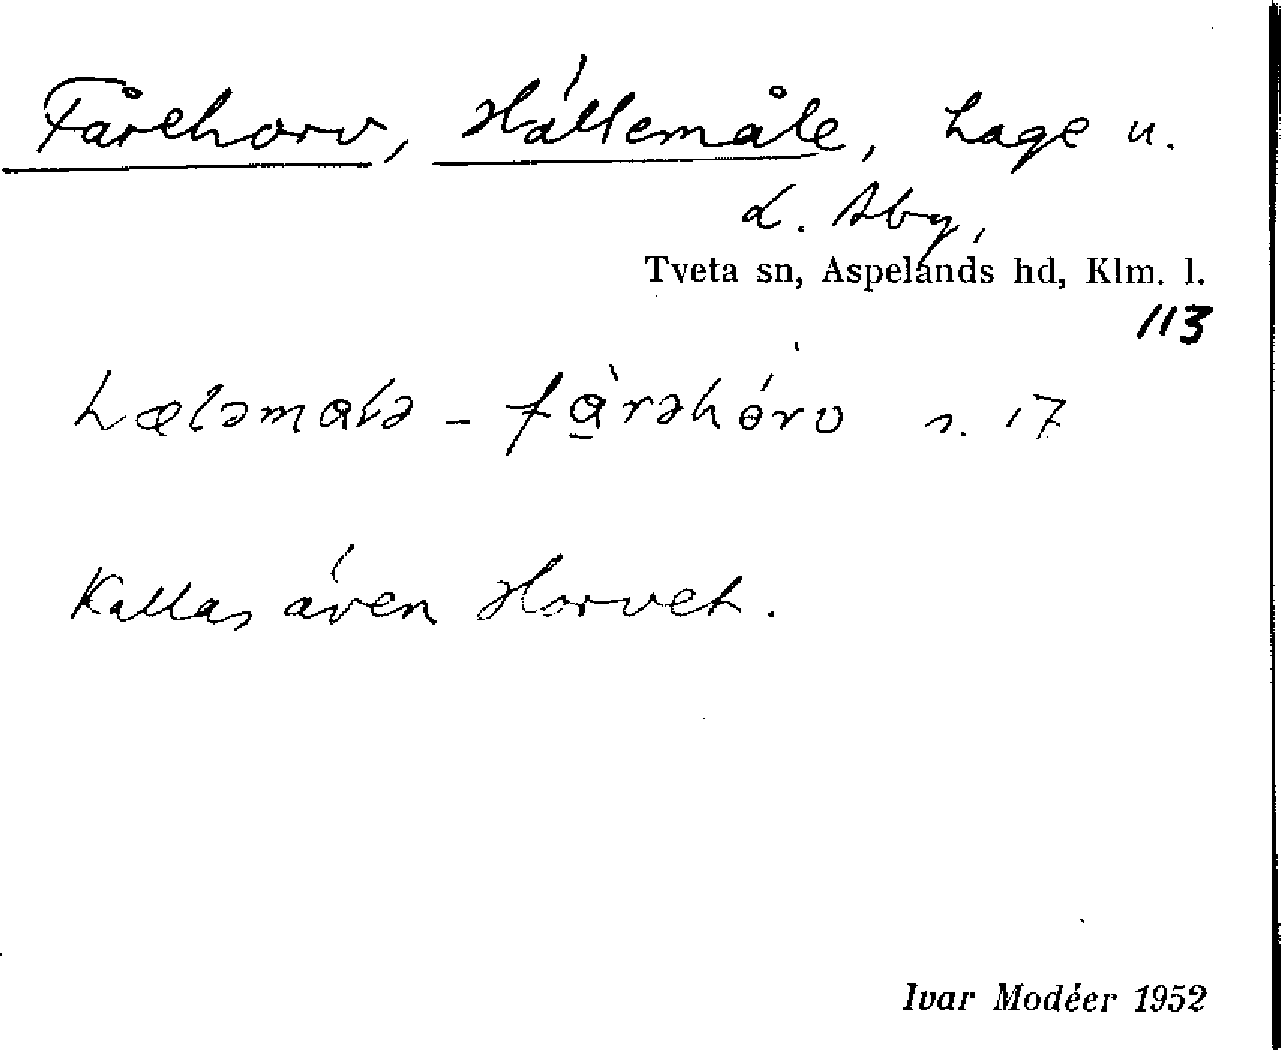 Fårehorv, Hällemåle, hage u.
L. Aby,
Tveta sn, Aspelands hd, Klm. l.
113
hæləmɑlə - fɑ̀rəhórv n. 17
Kallas även Horvet.
Ivar Modéer 1952